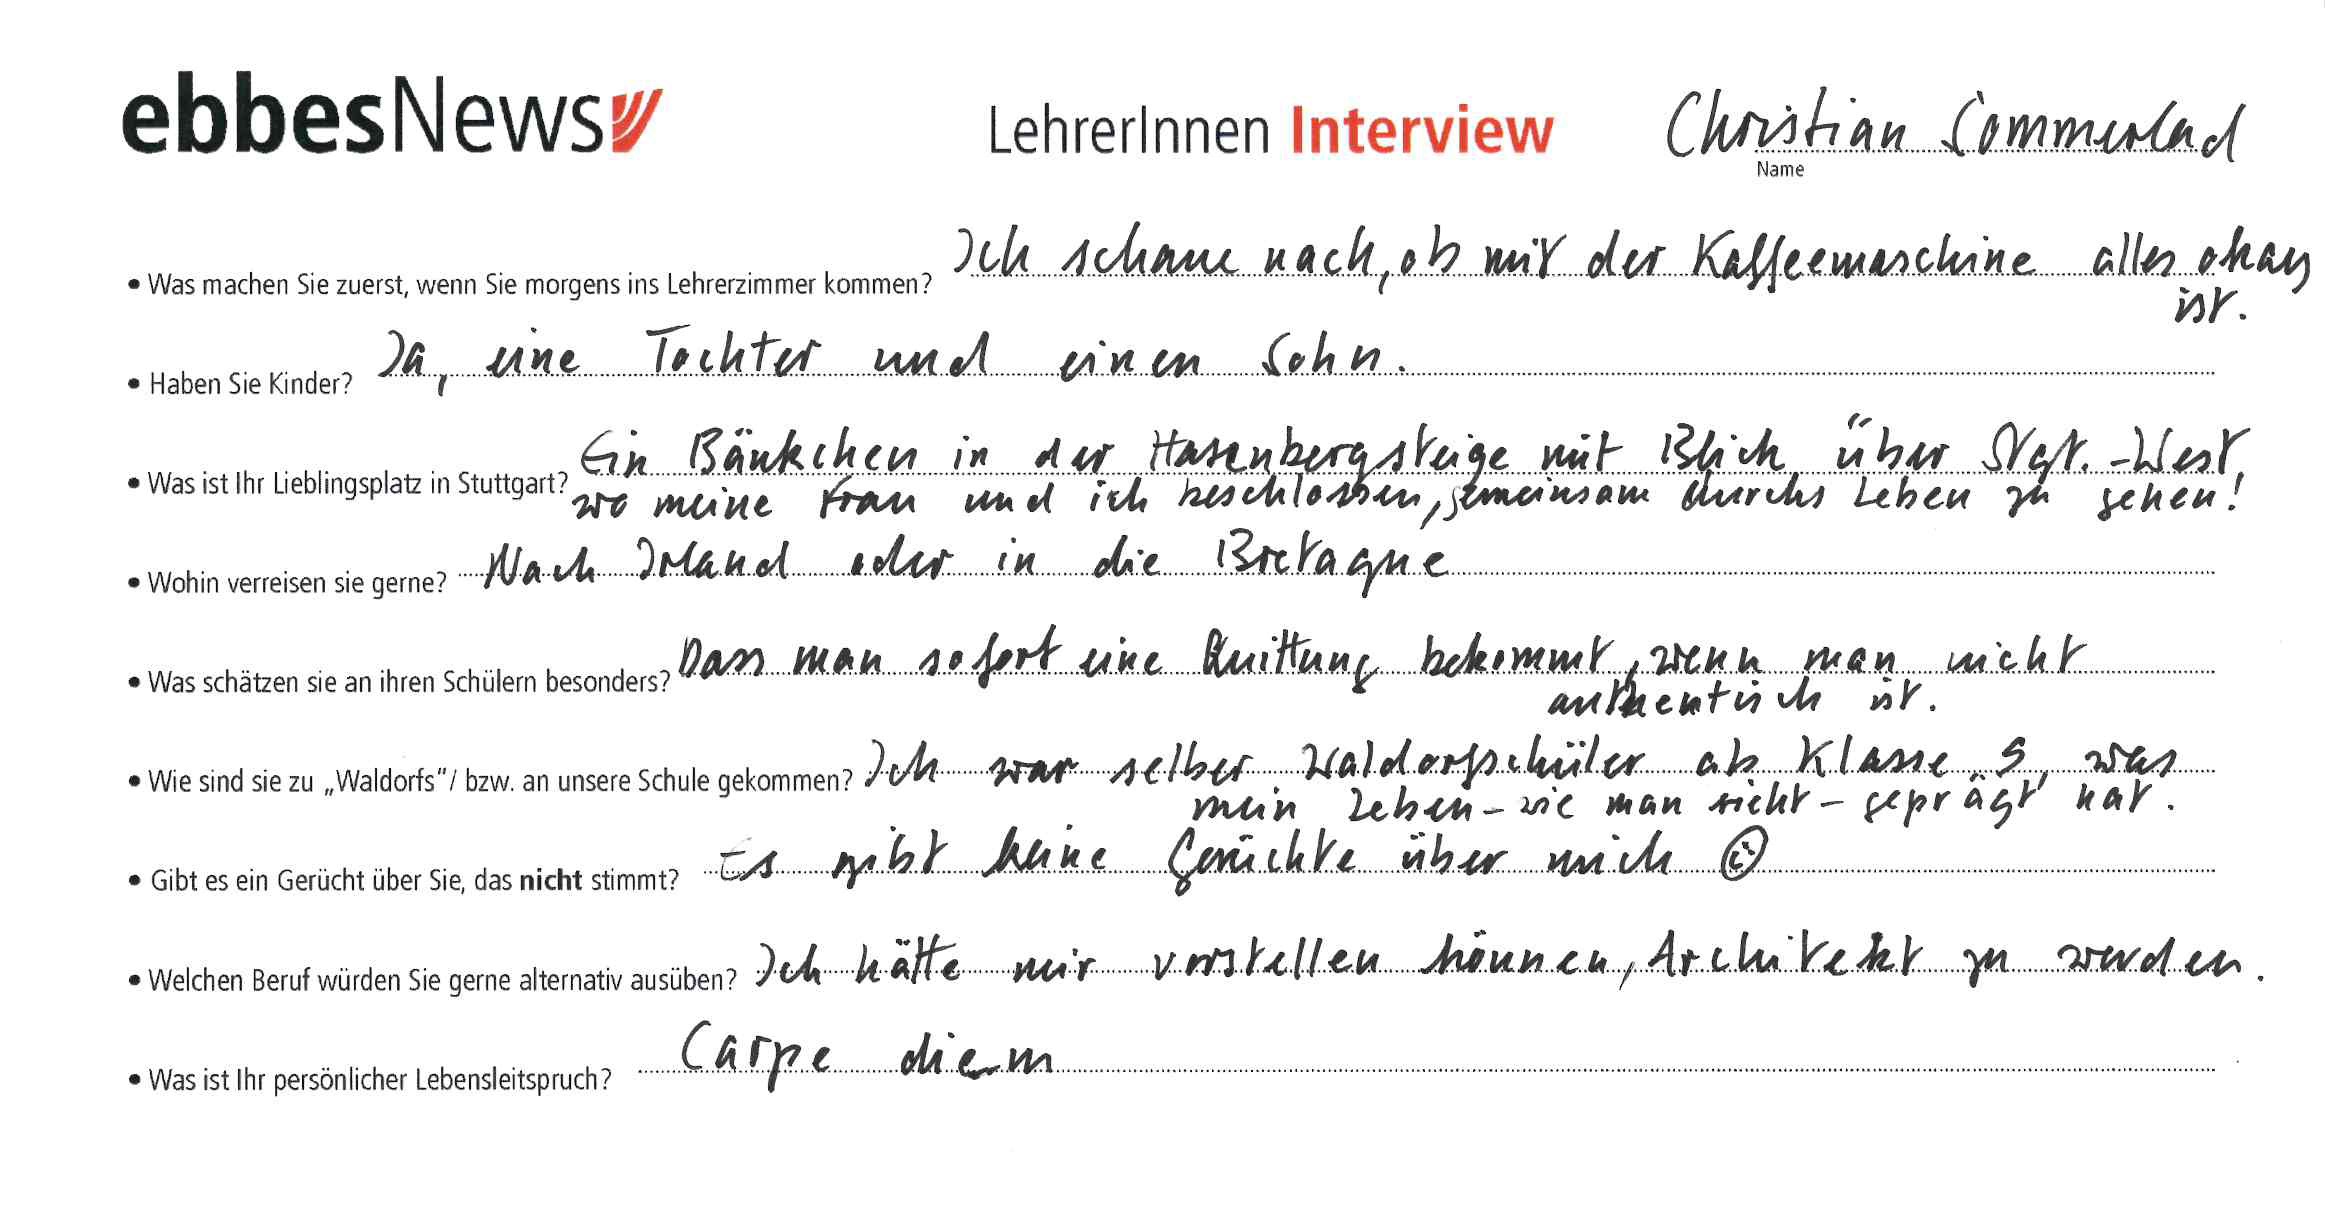 ebbesNews
LehrerInnen Interview
Christian Sommerlad
Name
• Was machen Sie zuerst, wenn Sie morgens ins Lehrerzimmer kommen? Ich schaue nach, ob mit der Kaffeemaschine alles okay
ist.
• Haben Sie Kinder? Ja, eine Tochter und einen Sohn.
• Was ist Ihr Lieblingsplatz in Stuttgart? Ein Bänkchen in der Hasenbergsteige mit Blick über Stgt.-West,
wo meine Frau und ich beschlossen, gemeinsam durchs Leben zu gehen!
• Wohin verreisen sie gerne? Nach Irland oder in die Bretagne
• Was schätzen sie an ihren Schülern besonders? Dass man sofort eine Quittung bekommt, wenn man nicht
authentisch ist.
• Wie sind sie zu „Waldorfs"/ bzw. an unsere Schule gekommen? Ich war selber Waldorfschüler ab Klasse 5, was
mein Leben - wie man sieht - geprägt hat.
• Gibt es ein Gerücht über Sie, das nicht stimmt? Es gibt keine Gerüchte über mich ☺
• Welchen Beruf würden Sie gerne alternativ ausüben? Ich hätte mir vorstellen können, Architekt zu werden.
• Was ist Ihr persönlicher Lebensleitspruch? Carpe diem